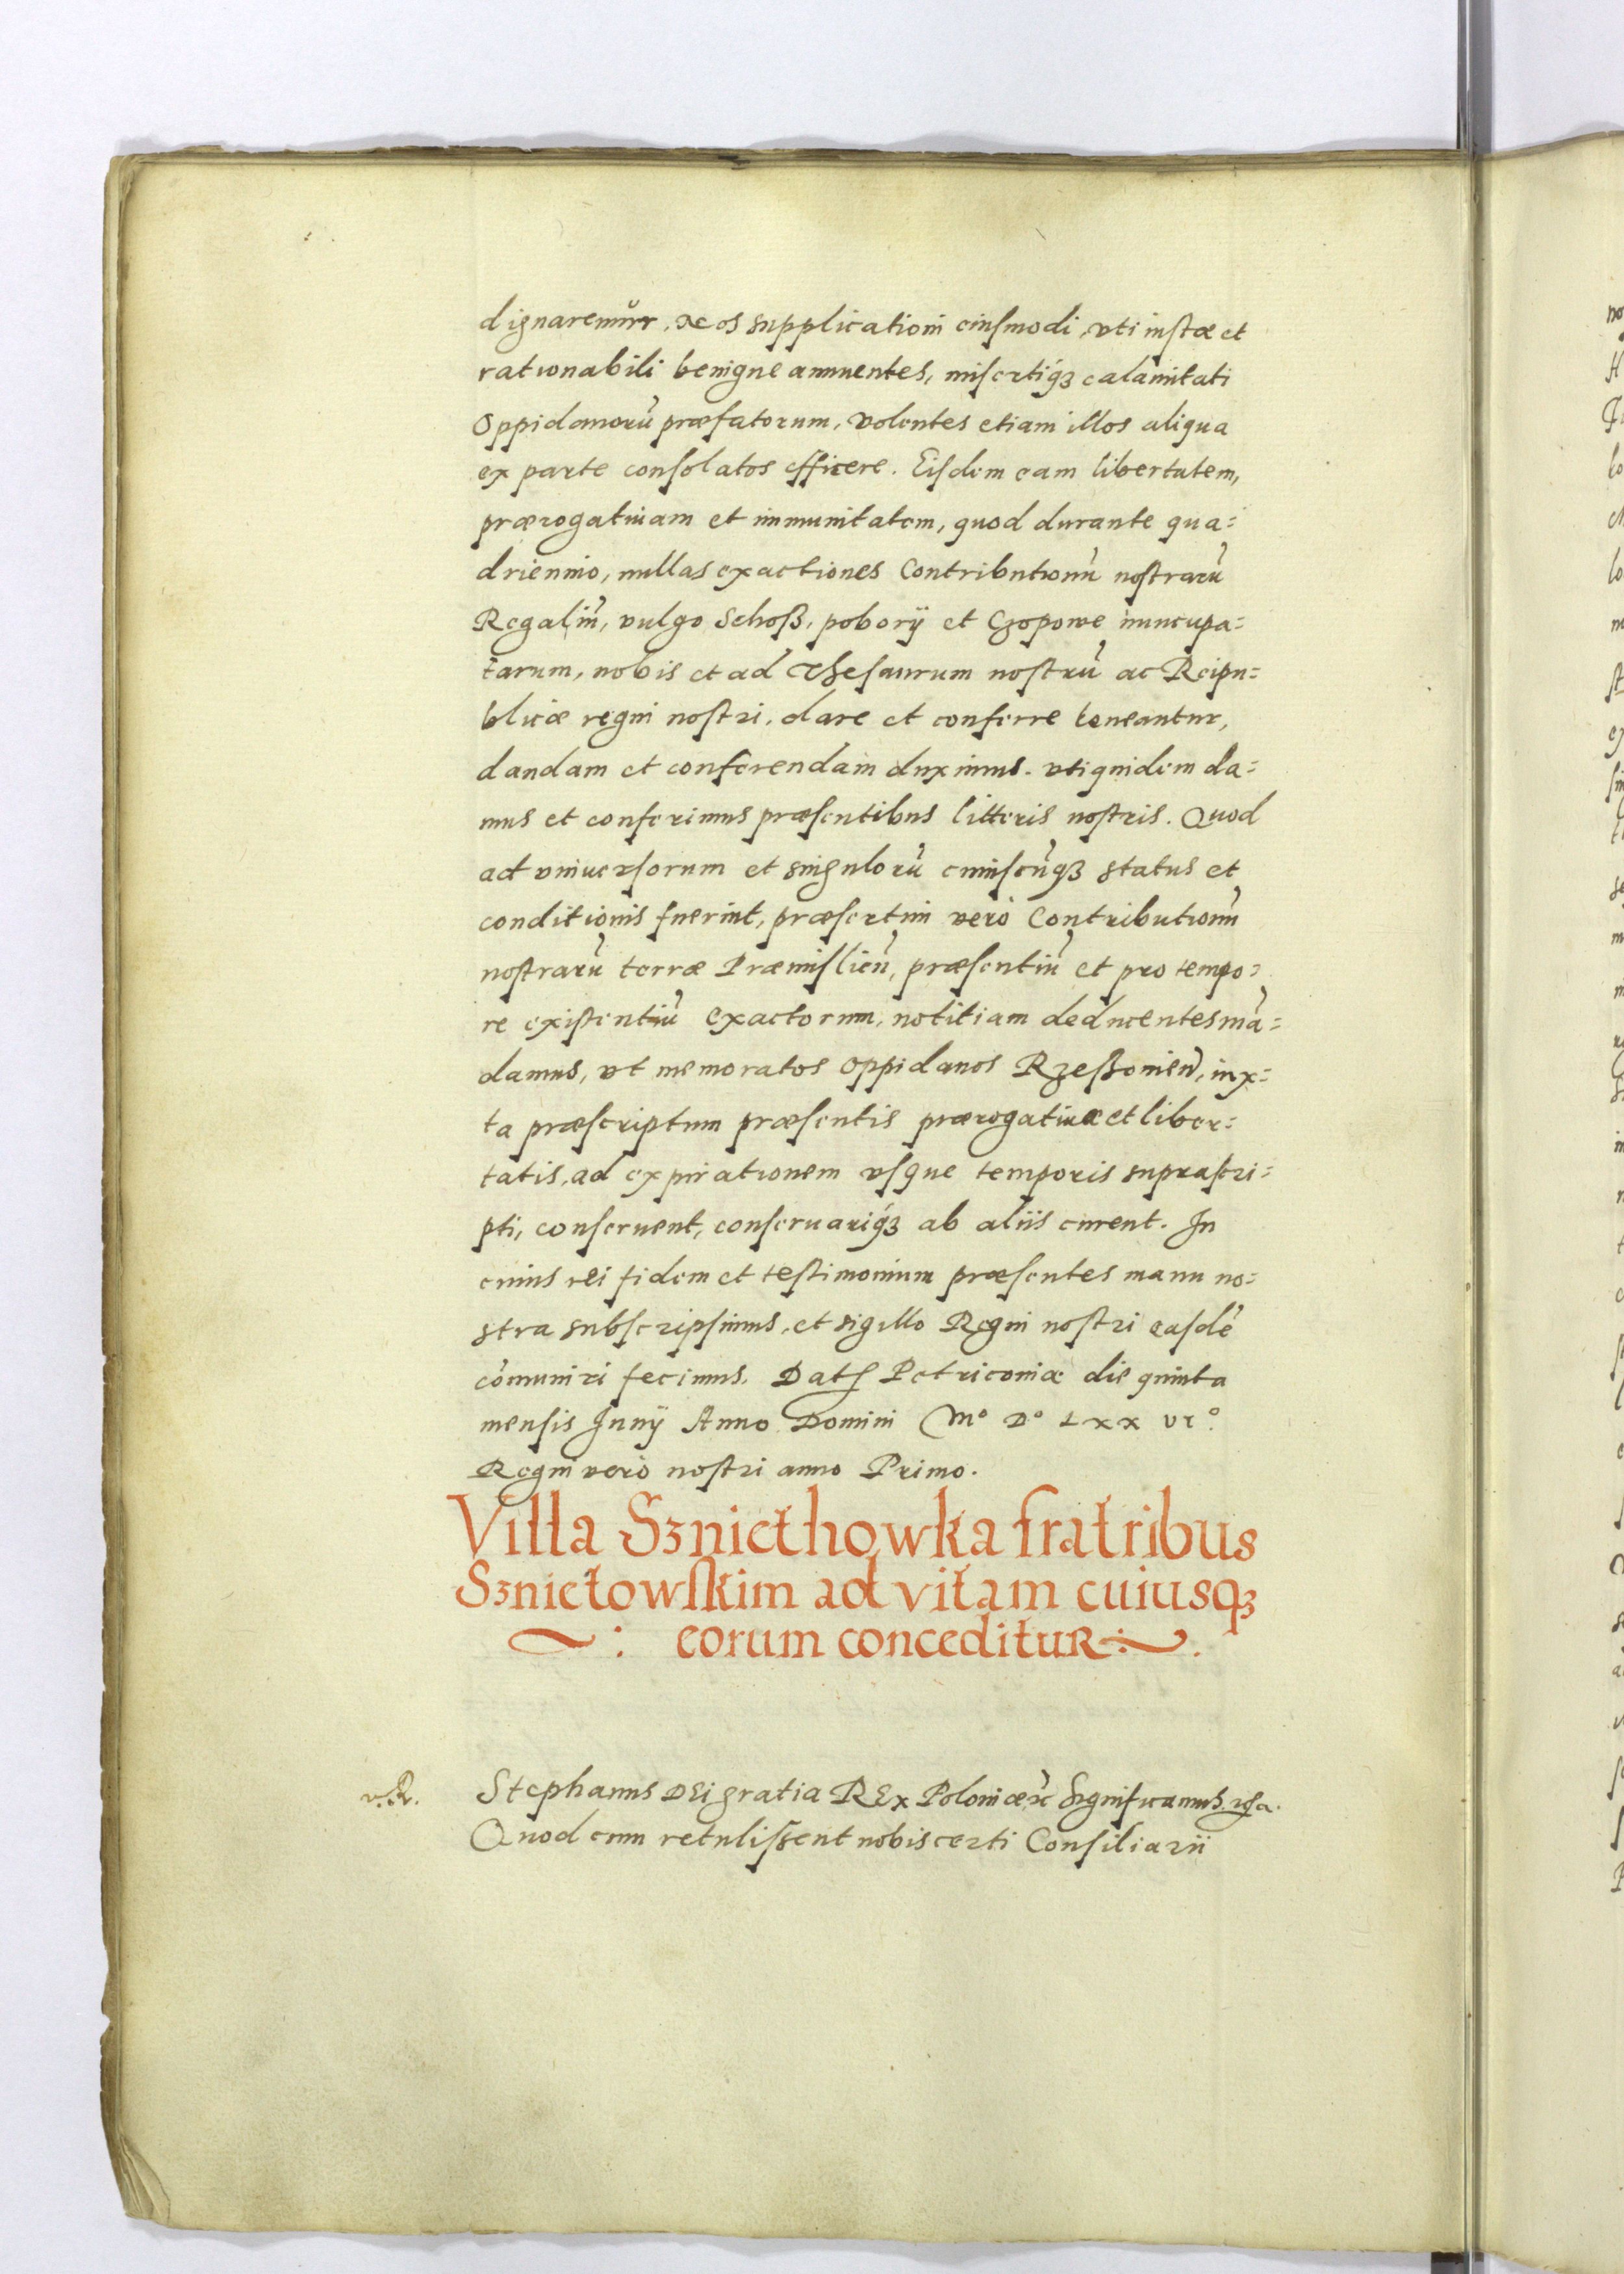 dignaremur, Nos supplicationi eiusmodi, vti iustæ et
rationabili benigne annuentes, misertiq₃ calamitati
Oppidanorū præfatorum, volentes etiam illos aliqua
ex parte consolatos efficere. Eisdem eam libertatem,
prærogatiuam et immunitatem, quod durante qua=
driennio, nullas exactiones Contributionū nostrarū
Regaliū, vulgo Schoß, pobory et Czopowe nuncupa=
tarum, nobis et ad Thesaurum nostrū ac Reipu=
blicæ regni nostri, dare et conferre teneantur,
dandam et conferendam duximus. vti quidem da=
mus et conferimus præsentibus litteris nostris. Quod
ad vniuersorum et singulorū cuiuscūq₃ status et
conditionis fuerint, præsertim verò Contributionū
nostrarū terræ Præmislień, præsentiū et pro tempo=
re existentiū exactorum, notitiam deducentes mā=
damus, vt memoratos oppidanos Rzeßonień, iux=
ta præscriptum præsentis prærogatiuæ et liber=
tatis, ad expirationem vsque temporis suprascri=
pti, conseruent, conseruariq₃ ab aliis curent. In
cuius rei fidem et testimonium præsentes manu no=
stra subscripsimus, et sigillo Regni nostri easdē
cōmuniri fecimus. Datȷ Petricouiæ die quinta
mensis Junij Anno Domini Mº Dº Lxx viº.
Regni verò nostri anno Primo.
Villa Sznicthowka fratribus
Sznictowskim ad vitam cuiusq₃
eorum conceditur
Stephanus DEi gratia REx Poloniæ ꝛc̃ Significamus. ꝛc̃a.
Quod cum retulissent nobis certi Consiliarii